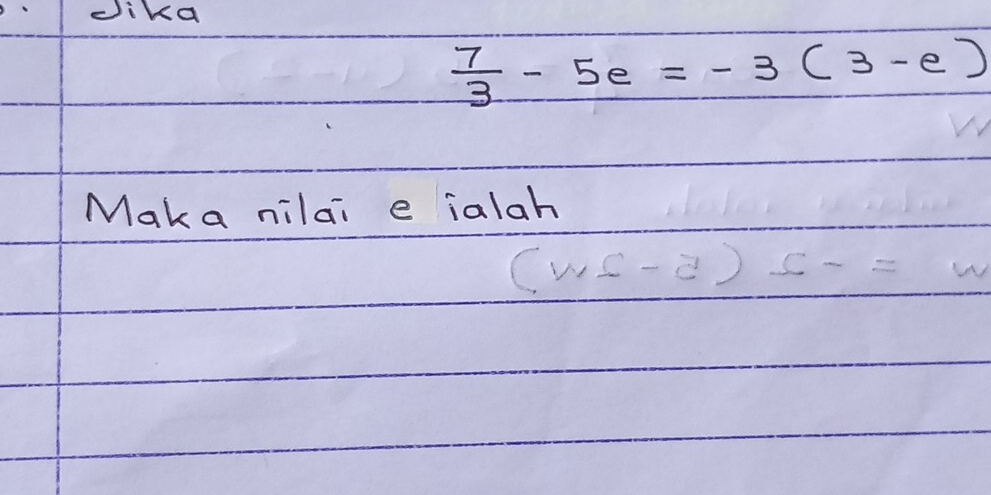 Jika
7/3 - 5e = - 3 ( 3 - e )
Maka nilai e ialah